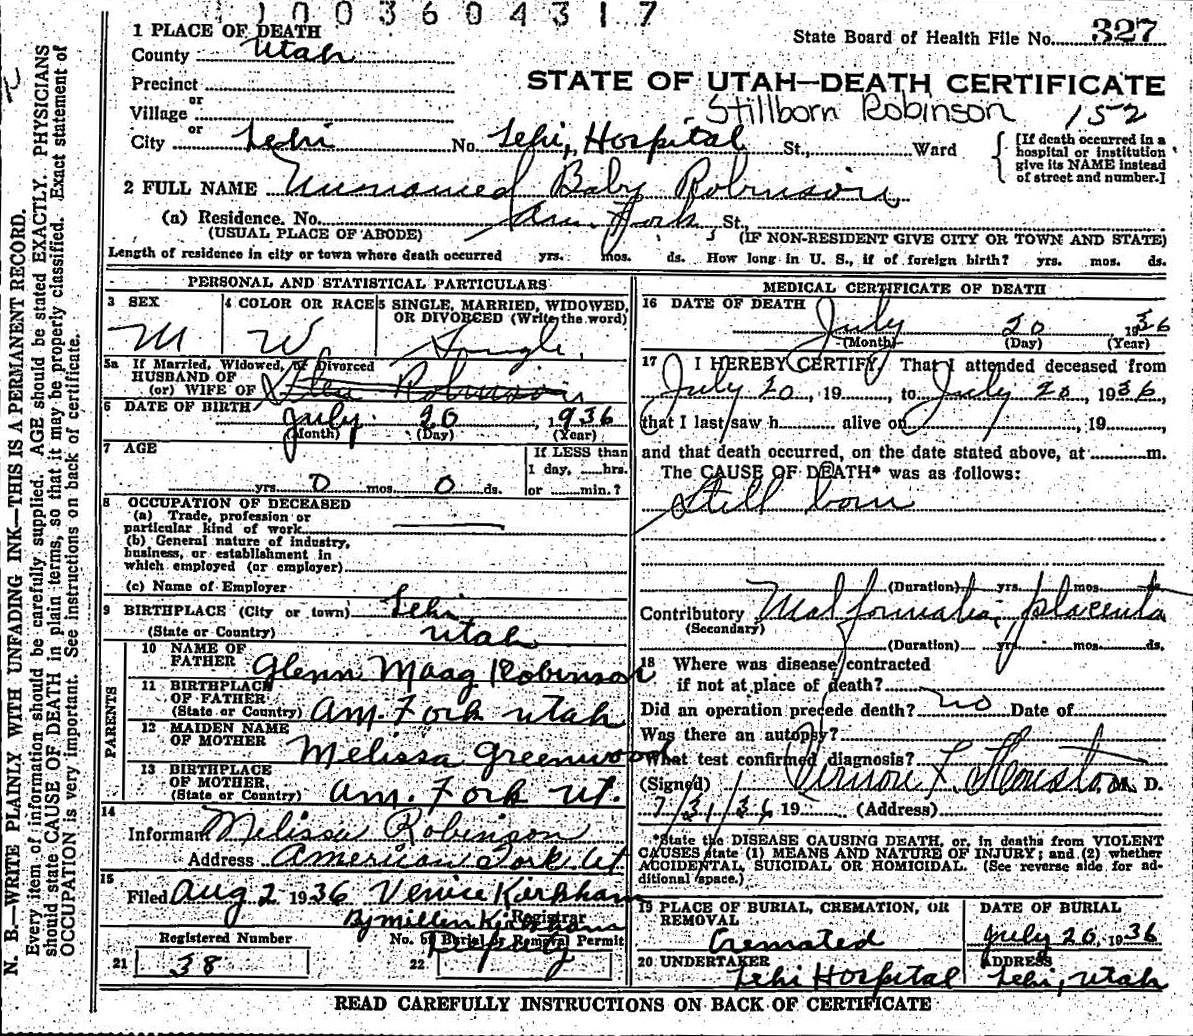 1003604317
1 PLACE OF DEATH
State Board of Health File No. 327
County Utah
Precinct
STATE OF UTAH—DEATH CERTIFICATE
or
Village
Stillborn Robinson 152
or
City Lehi No. Lehi, Hospital St., Ward
[If death occurred in a
hospital or institution
give its NAME instead
of street and number.]
2 FULL NAME Unnamed Baby Robinson
(a) Residence. No. Am. Fork St.,
(USUAL PLACE OF ABODE) (IF NON-RESIDENT GIVE CITY OR TOWN AND STATE)
Length of residence in city or town where death occurred yrs. mos. ds. How long in U. S., if of foreign birth? yrs. mos. ds.
PERSONAL AND STATISTICAL PARTICULARS
3 SEX
M
4 COLOR OR RACE
W
5 SINGLE, MARRIED, WIDOWED,
OR DIVORCED (Write the word)
Single.
5a If Married, Widowed, or Divorced
HUSBAND OF
(or) WIFE OF Robinson
6 DATE OF BIRTH July 20, 1936
(Month) (Day) (Year)
7 AGE
yrs. 0 mos. 0 ds.
If LESS than
1 day, hrs.
or min.?
8 OCCUPATION OF DECEASED
(a) Trade, profession or
particular kind of work
(b) General nature of industry,
business, or establishment in
which employed (or employer)
(c) Name of Employer
9 BIRTHPLACE (City or town) Lehi
(State or Country) Utah
PARENTS
10 NAME OF
FATHER Glenn Maag Robinson
11 BIRTHPLACE
OF FATHER
(State or Country) Am. Fork Utah
12 MAIDEN NAME
OF MOTHER Melissa Greenwood
13 BIRTHPLACE
OF MOTHER
(State or Country) Am. Fork Ut.
14
Informant Melissa Robinson
Address American Fork Ut
15
Filed Aug 2 1936 Venice Kirkham
By Millen Kirkham
Registrar
Deputy
Registered Number No. of Burial or Removal Permit
21 38 22
MEDICAL CERTIFICATE OF DEATH
16 DATE OF DEATH
July 20 1936
(Month) (Day) (Year)
17 I HEREBY CERTIFY, That I attended deceased from
July 20, 19, to July 20, 1936,
that I last saw h alive on , 19,
and that death occurred, on the date stated above, at m.
The CAUSE OF DEATH* was as follows:
Still born
(Duration) yrs. mos. ds.
Contributory Malformation, placenta
(Secondary)
(Duration) yrs. mos. ds.
18 Where was disease contracted
if not at place of death?
Did an operation precede death? no Date of
Was there an autopsy?
What test confirmed diagnosis?
(Signed) Vernon F. Houston M. D.
7/31/36 19 (Address)
*State the DISEASE CAUSING DEATH, or, in deaths from VIOLENT
CAUSES state (1) MEANS AND NATURE OF INJURY; and (2) whether
ACCIDENTAL, SUICIDAL OR HOMICIDAL. (See reverse side for ad-
ditional space.)
19 PLACE OF BURIAL, CREMATION, OR
REMOVAL
Cremated
DATE OF BURIAL
July 20, 1936
20 UNDERTAKER
Lehi Hospital
ADDRESS
Lehi, Utah
READ CAREFULLY INSTRUCTIONS ON BACK OF CERTIFICATE
N. B.—WRITE PLAINLY WITH UNFADING INK—THIS IS A PERMANENT RECORD.
Every item of information should be carefully supplied. AGE should be stated EXACTLY. PHYSICIANS
should state CAUSE OF DEATH in plain terms, so that it may be properly classified. Exact statement of
OCCUPATION is very important. See instructions on back of certificate.